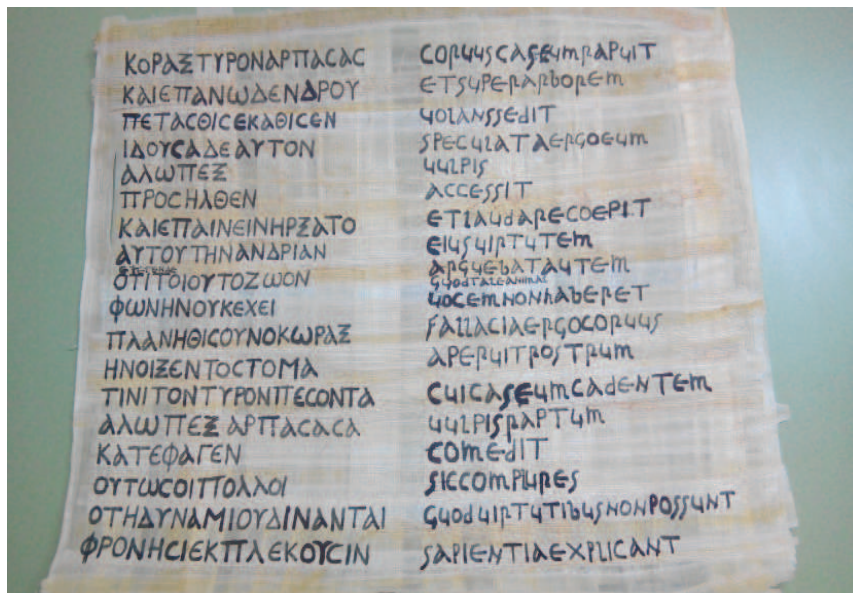 ΚΟΡΑΞΤΥΡΟΝΑΡΠΑCΑC
ΚΑΙΕΠΑΝΩΔΕΝΔΡΟΥ
ΠΕΤΑCΘΙCΕΚΑΘΙCΕΝ
ΙΔΟΥCΑΔΕΑΥΤΟΝ
ΑΛΩΠΕΞ
ΠΡΟCΗΛΘΕΝ
ΚΑΙΕΠΑΙΝΕΙΝΗΡΞΑΤΟ
ΑΥΤΟΥΤΗΝΑΝΔΡΙΑΝ
ΟΤΙΤΟΙΟΥΤΟΖΩΟΝ
ΦΩΝΗΝΟΥΚΕΧΕΙ
ΠΛΑΝΗΘΙCΟΥΝΟΚΩΡΑΞ
ΗΝΟΙΞΕΝΤΟCΤΟΜΑ
ΤΙΝΙΤΟΝΤΥΡΟΝΠΕCΟΝΤΑ
ΑΛΩΠΕΞ ΑΡΠΑCΑCΑ
ΚΑΤΕΦΑΓΕΝ
ΟΥΤΩCΟΙΠΟΛΛΟΙ
ΟΤΗΔΥΝΑΜΙΟΥΔΙΝΑΝΤΑΙ
ΦΡΟΝΗCΙΕΚΠΛΕΚΟΥCΙΝ
CORUUSCASEUMRAPUIT
ETSUPERARBOREM
UOLANSSEDIT
SPECULATAERGOEUM
UULPIS
ACCESSIT
ETLAUDARECOEPIT
EIUSUIRTUTEM
ARGUEBATAUTEM
QUODTALEANIMAL
UOCEMNONHABERET
FALLACIAERGOCORUUS
APERUITROSTRUM
CUICASEUMCADENTEM
UULPISRAPTUM
COMEDIT
SICCOMPLURES
QUODUIRTUTIBUSNONPOSSUNT
SAPIENTIAEXPLICANT